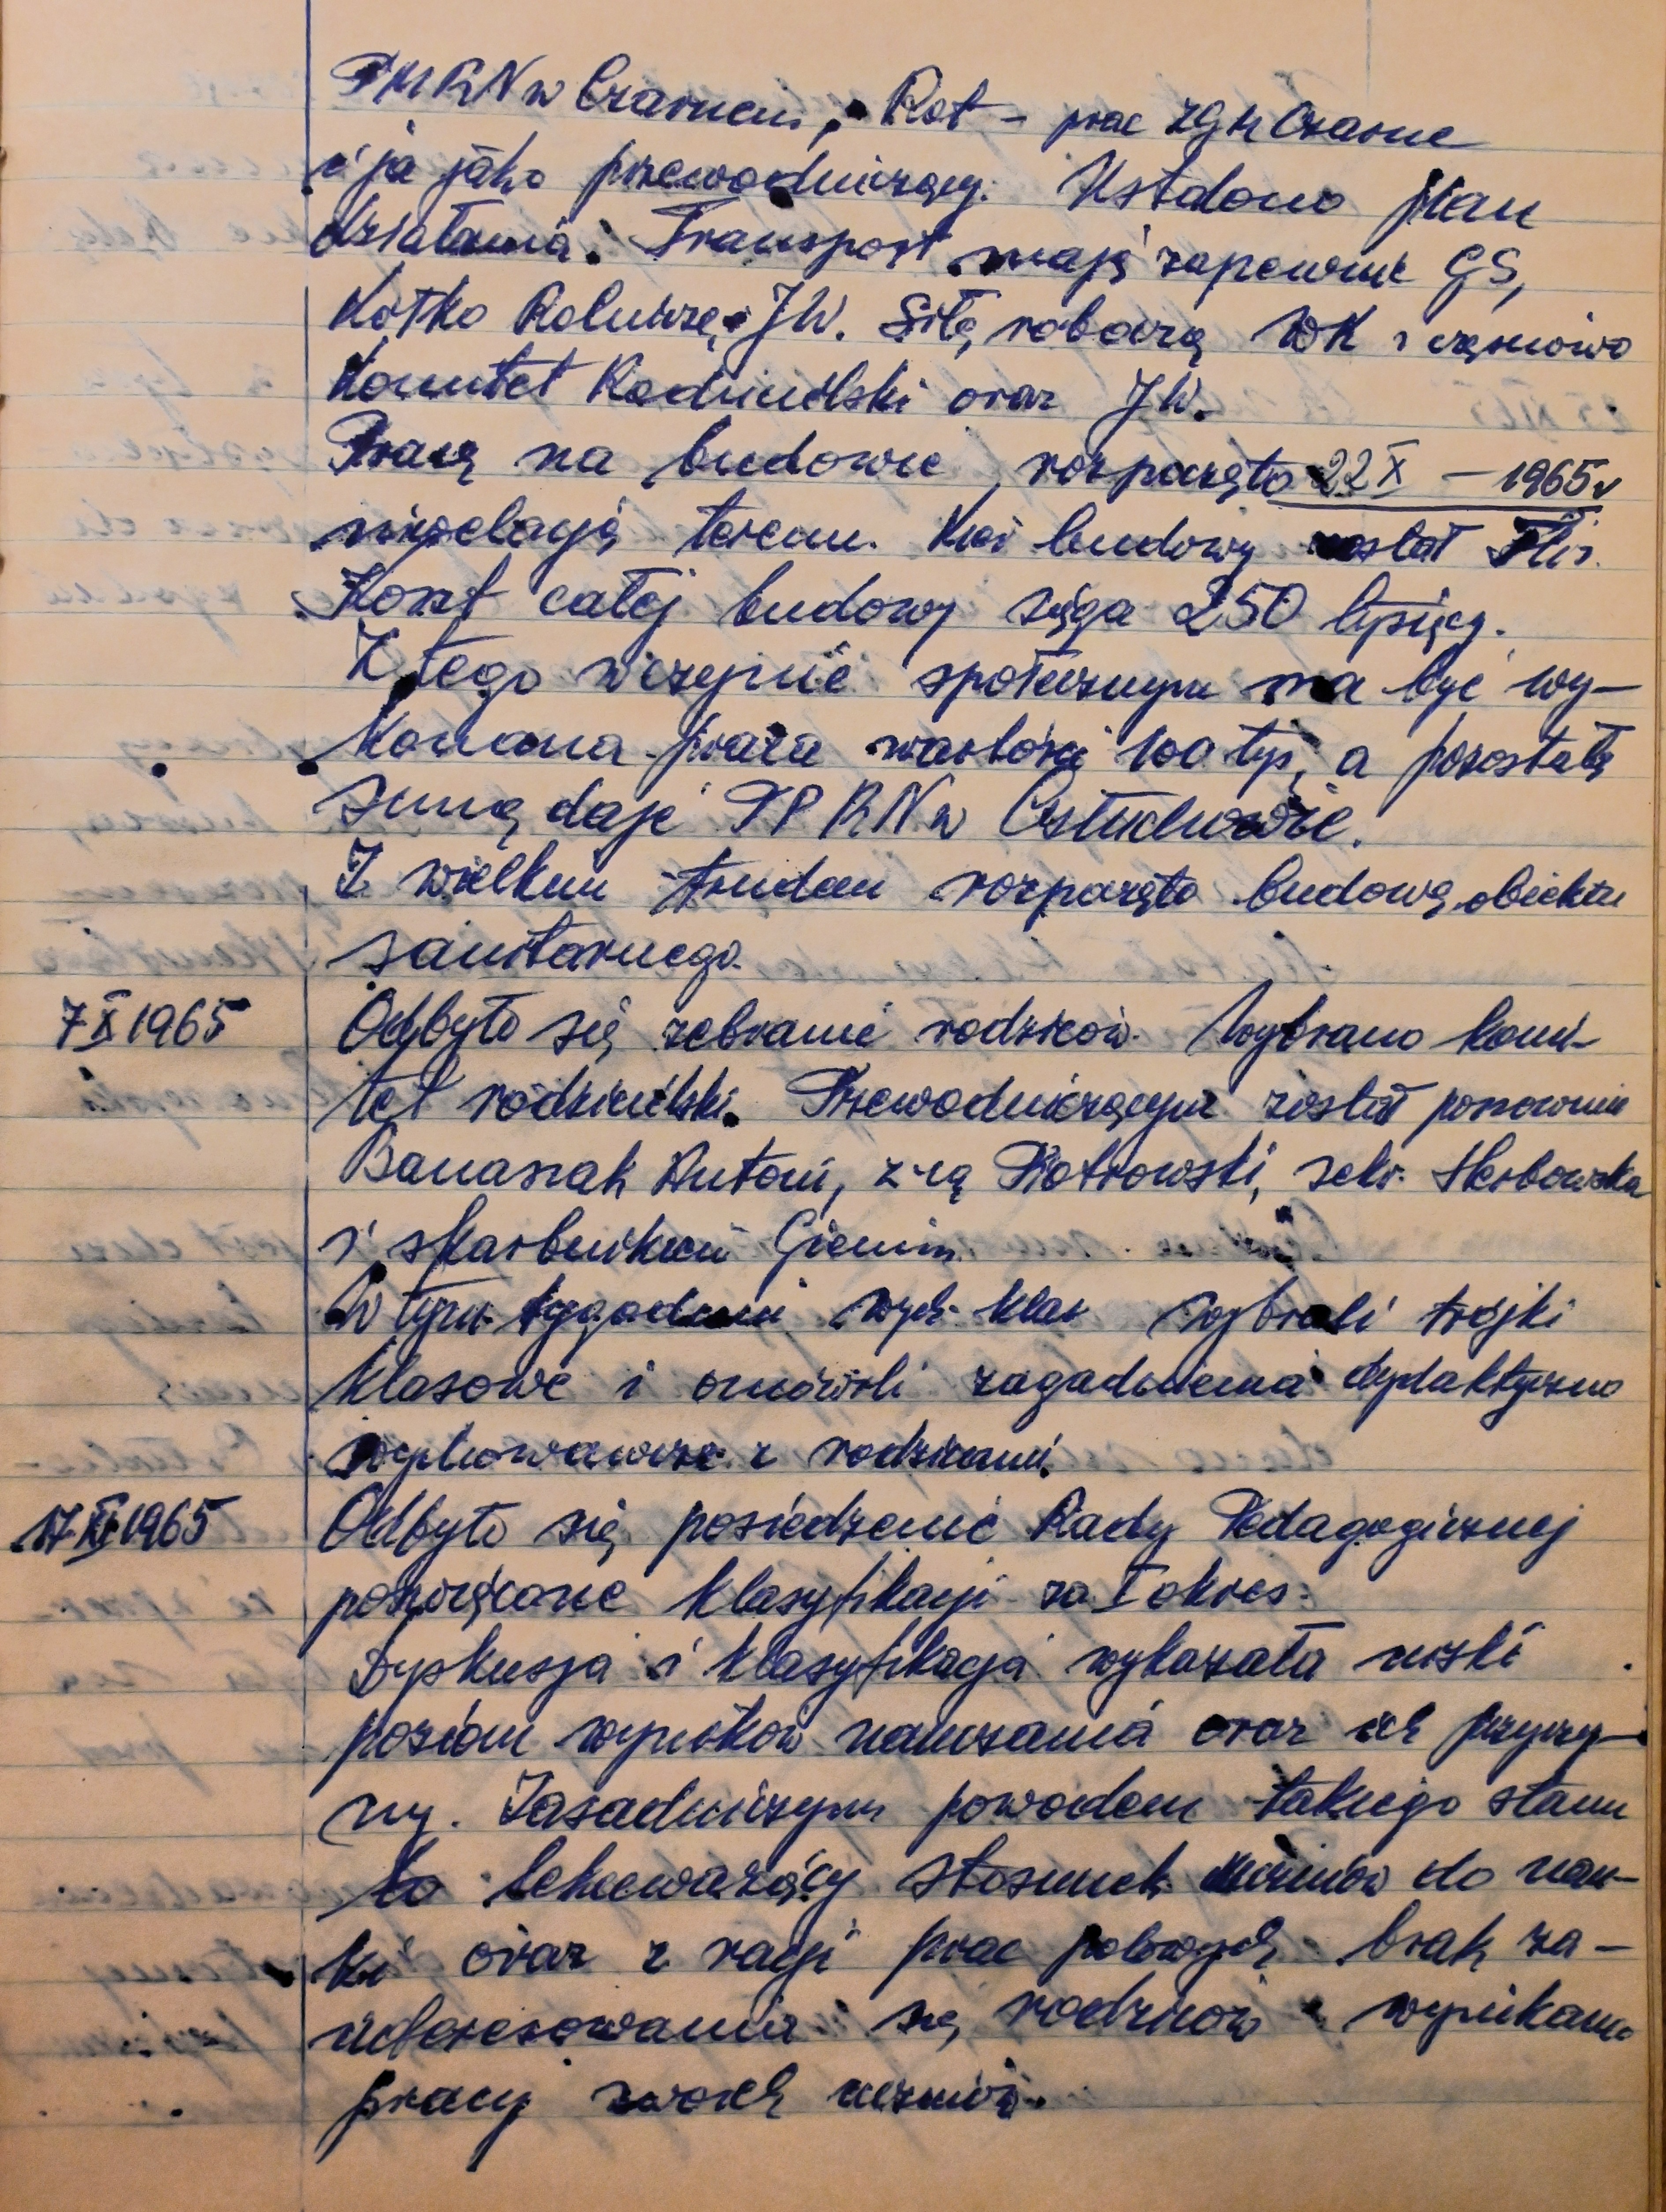 PMRN w Czarnem, Rot - prac ZGM Czarne
i ja jako przewodniczący. Ustalono plan
działania. Transport mają zapewnić GS,
Kółko Rolnicze, JW. Siłę roboczą WK i częściowo
Komitet Rodzicielski oraz JW.
Pracę na budowie rozpoczęto 22 X - 1965 r
niwelacją terenu. Kier budowy został Flis.
Koszt całej budowy sięga 250 tysięcy.
Z tego w czynie społecznym ma być wy-
konana praca wartości 100 tys, a pozostałą
sumę daje PPRN w Człuchowie.
Z wielkim trudem rozpoczęto budowę obiektu
sanitarnego.
7 X 1965 Odbyło się zebranie rodziców. Wybrano komi-
tet rodzicielski. Przewodniczącym został ponownie
Banaszak Antoni, z-cą Piotrowski, sekr. Herbowska
i skarbnikiem
W tym tygodniu wych. klas wybrali trójki
klasowe i omówili zagadnienia dydaktyczno
wychowawcze z rodzicami.
17 XI 1965 Odbyło się posiedzenie Rady Pedagogicznej
poświęcone klasyfikacji za I okres.
Dyskusja i klasyfikacja wykazała niski
poziom wyników nauczania oraz ich przyczy-
ny. Zasadniczym powodem takiego stanu
to lekceważący stosunek uczniów do nau-
ki oraz z racji prac polowych brak za-
interesowania się rodziców wynikami
pracy swoich uczniów.